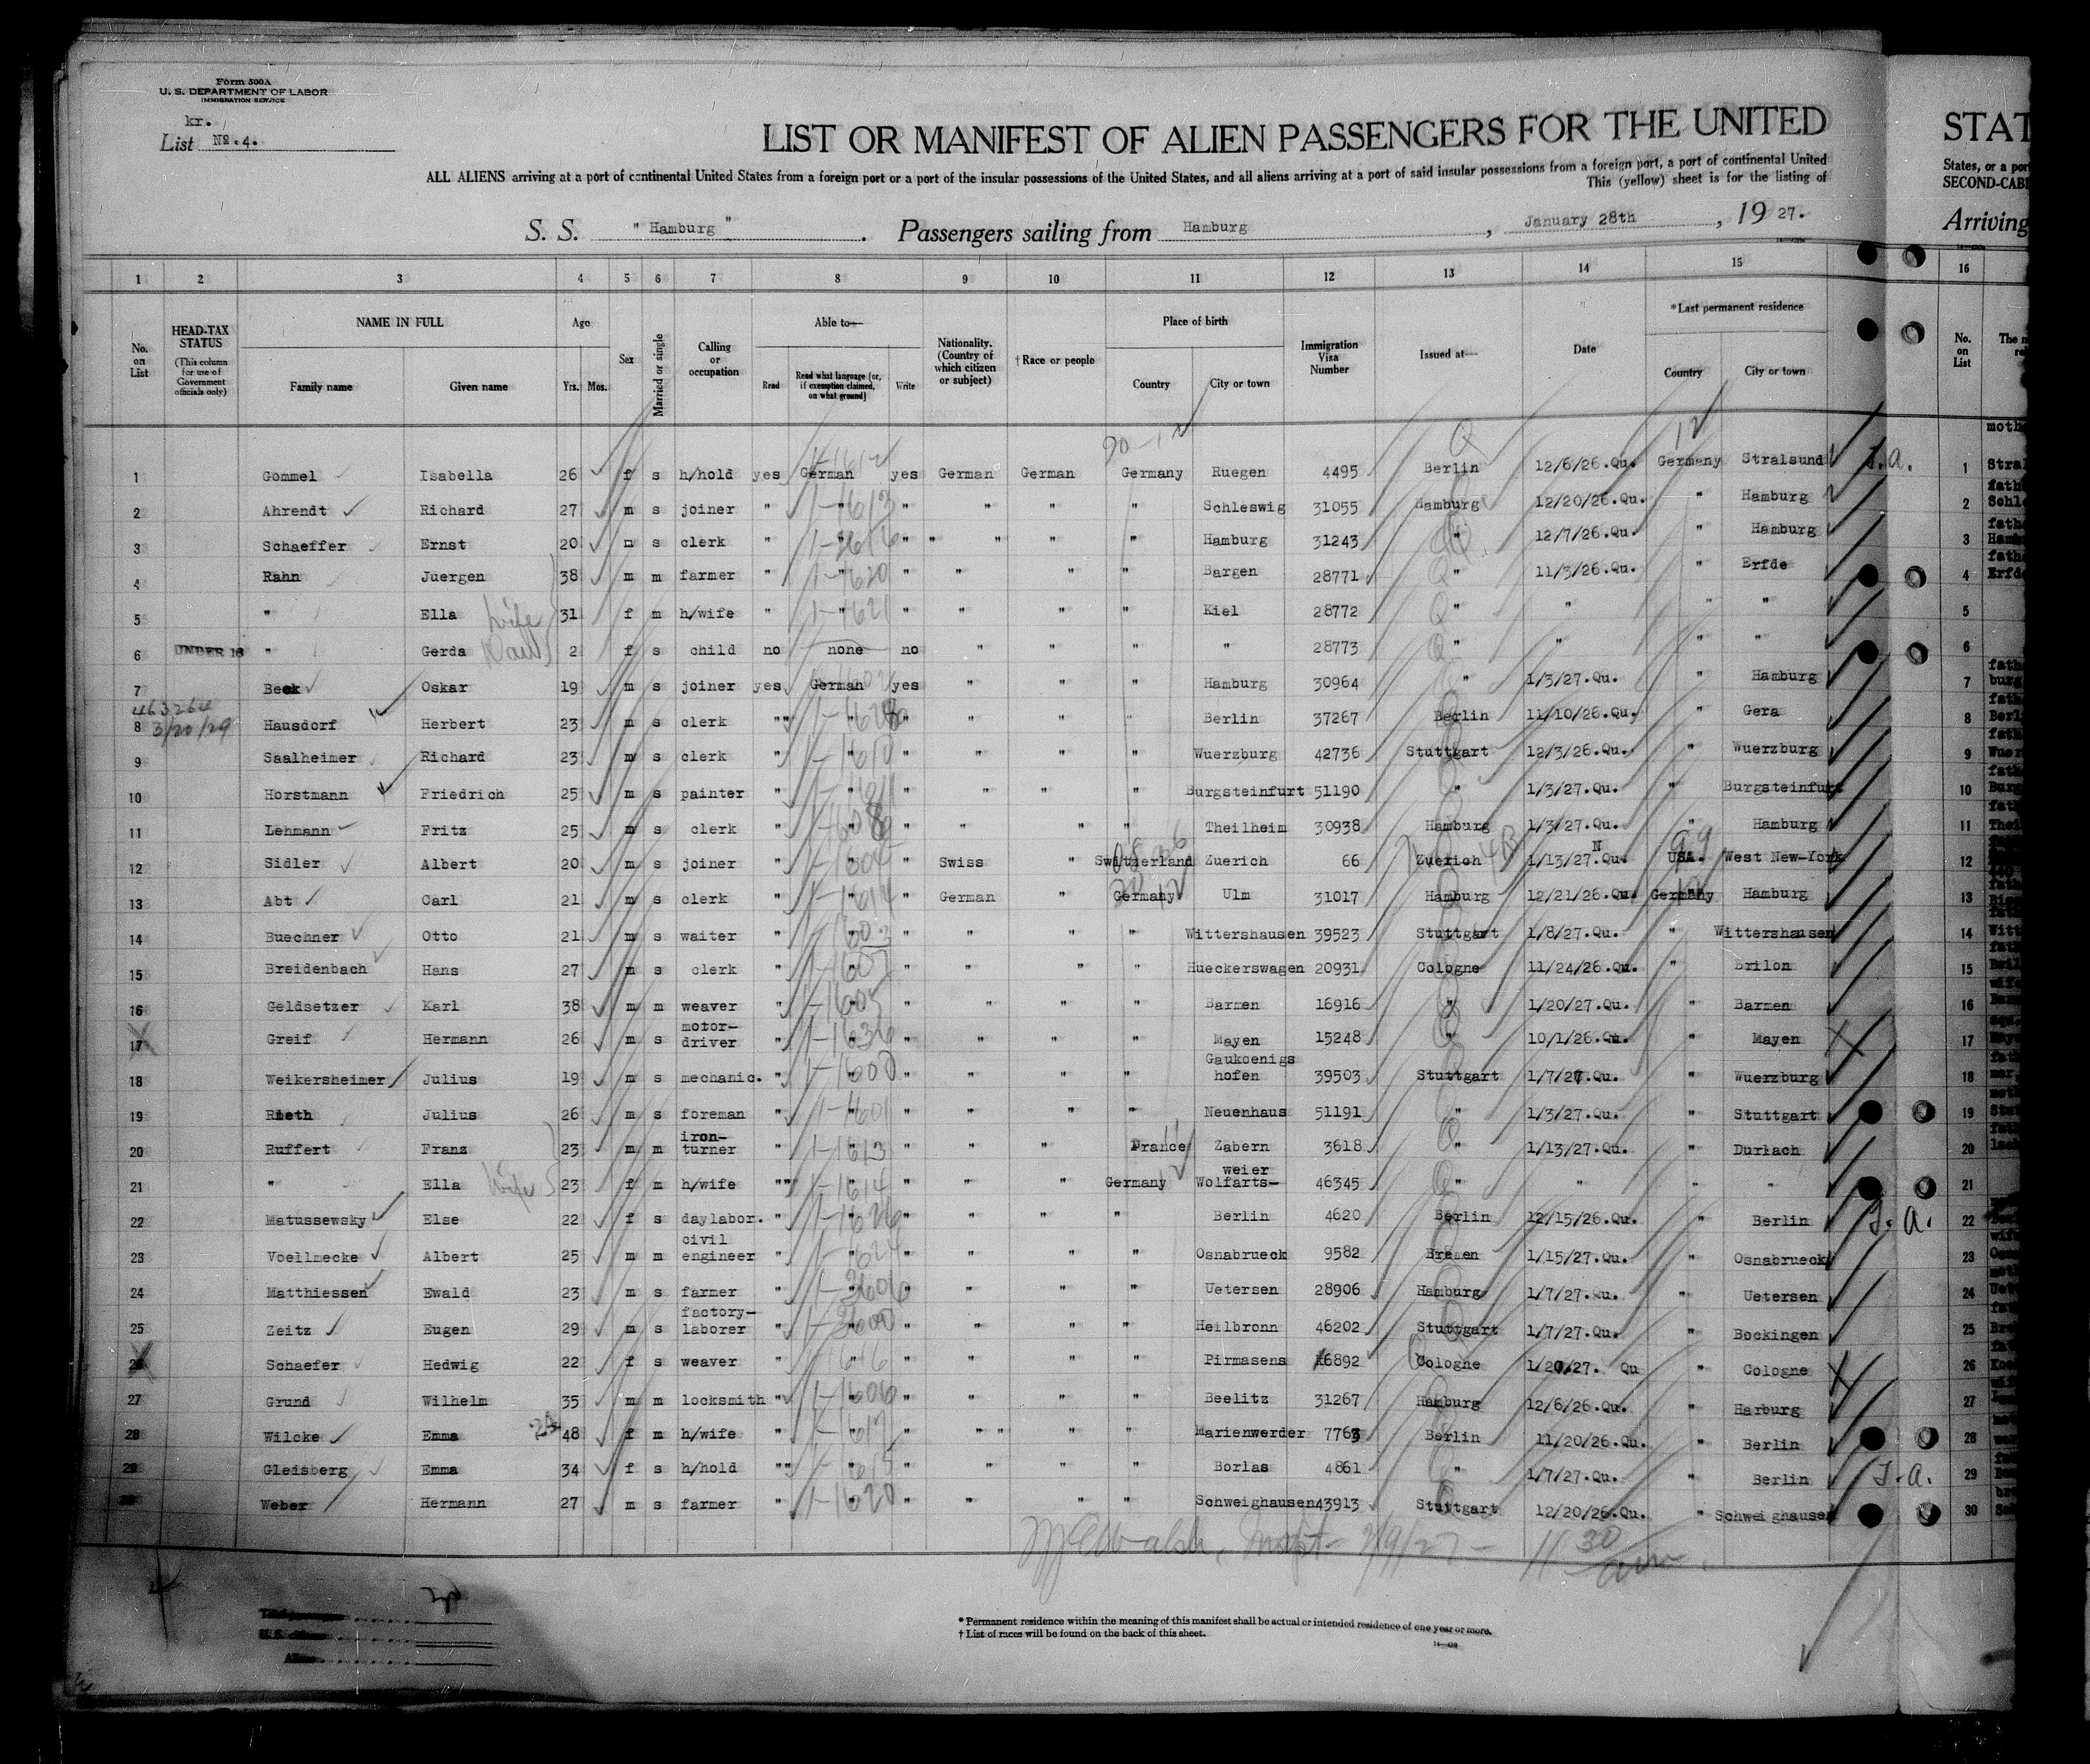 Form 500A
U. S. DEPARTMENT OF LABOR
IMMIGRATION SERVICE
kr.
List No. 4.
LIST OR MANIFEST OF ALIEN PASSENGERS FOR THE UNITED
STAT
ALL ALIENS arriving at a port of continental United States from a foreign port or a port of the insular possessions of the United States, and all aliens arriving at a port of said insular possessions from a foreign port, a port of continental United
States, or a por
This (yellow) sheet is for the listing of
SECOND-CABI
S. S. "Hamburg". Passengers sailing from Hamburg, January 28th, 1927.
Arriving
1 2 3 4 5 6 7 8 9 10 11 12 13 14 15 16
No. on List
HEAD-TAX STATUS (This column for use of Government officials only)
NAME IN FULL Family name Given name
Age Yrs. Mos.
Sex
Married or single
Calling or occupation
Able to— Read Read what language (or, if exemption claimed, on what ground) Write
Nationality. (Country of which citizen or subject)
† Race or people
Place of birth Country City or town
Immigration Visa Number
Issued at—
Date
* Last permanent residence Country City or town
No. on List
1 Gommel Isabella 26 f s h/hold yes German yes German German Germany Ruegen 4495 Berlin 12/6/26.Qu. Germany Stralsund 1
2 Ahrendt Richard 27 m s joiner " " " " " " Schleswig 31055 Hamburg 12/20/26.Qu. " Hamburg 2
3 Schaeffer Ernst 20 m s clerk " " " " " " " Hamburg 31243 " 12/7/26.Qu. " Hamburg 3
4 Rahn Juergen 38 m m farmer " " " " " " Bargen 28771 " 11/3/26.Qu. " Erfde 4
5 " Ella wife 31 f m h/wife " " " " " " Kiel 28772 " " " " 5
6 UNDER 16 " Gerda 2 f s child no none no " " " " 28773 " " " " 6
7 Beck Oskar 19 m s joiner yes German yes " " " Hamburg 30964 " 1/3/27.Qu. " Hamburg 7
463264
8 3/20/29 Hausdorf Herbert 23 m s clerk "" " " " " " Berlin 37267 Berlin 11/10/26.Qu. " Gera 8
9 Saalheimer Richard 23 m s clerk " " " " " " Wuerzburg 42736 Stuttgart 12/3/26.Qu. " Wuerzburg 9
10 Horstmann Friedrich 25 m s painter " " " " " " Burgsteinfurt 51190 " 1/3/27.Qu. " Burgsteinfurt 10
11 Lehmann Fritz 25 m s clerk " " " " " " Theilheim 30938 Hamburg 1/3/27.Qu. " Hamburg 11
12 Sidler Albert 20 m s joiner " " " Swiss " Switzerland Zuerich 66 Zuerich 1/13/27.Qu. N USA. West New-York 12
13 Abt Carl 21 m s clerk " " " German " Germany Ulm 31017 Hamburg 12/21/26.Qu. Germany Hamburg 13
14 Buechner Otto 21 m s waiter " " " " " " Wittershausen 39523 Stuttgart 1/8/27.Qu. " Wittershausen 14
15 Breidenbach Hans 27 m s clerk " " " " " " Hueckerswagen 20931 Cologne 11/24/26.Qu. " Brilon 15
16 Geldsetzer Karl 38 m m weaver " " " " " " Barmen 16916 " 1/20/27.Qu. " Barmen 16
17 Greif Hermann 26 m s motor-driver " " " " " " Mayen 15248 " 10/1/26.Qu. " Mayen 17
18 Weikersheimer Julius 19 m s mechanic. " " " " " " Gaukoenigshofen 39503 Stuttgart 1/7/27.Qu. " Wuerzburg 18
19 Rieth Julius 26 m s foreman " " " " " " Neuenhaus 51191 " 1/3/27.Qu. " Stuttgart 19
20 Ruffert Franz 23 m m iron-turner " " " " " France Zabern 3618 " 1/13/27.Qu. " Durlach 20
21 " Ella wife 23 f m h/wife "" " " " " Germany weier Wolfarts- 46345 " " " " 21
22 Matussewsky Else 22 f s daylabor. " " " " " " Berlin 4620 Berlin 12/15/26.Qu. " Berlin 22
23 Voellmecke Albert 25 m m civil engineer " " " " " " Osnabrueck 9582 Bremen 1/15/27.Qu. " Osnabrueck 23
24 Matthiessen Ewald 23 m s farmer " " " " " " Uetersen 28906 Hamburg 1/7/27.Qu. " Uetersen 24
25 Zeitz Eugen 29 m s factory-laborer " " " " " " Heilbronn 46202 Stuttgart 1/7/27.Qu. " Bockingen 25
26 Schaefer Hedwig 22 f s weaver " " " " " " Pirmasens 16892 Cologne 1/20/27. Qu " Cologne 26
27 Grund Wilhelm 35 m m locksmith " " " " " " Beelitz 31267 Hamburg 12/6/26.Qu. " Harburg 27
28 Wilcke Emma 48 f m h/wife " " " " " " " Marienwerder 7763 Berlin 11/20/26.Qu. " Berlin 28
29 Gleisberg Emma 34 f s h/hold "" " " " " " Borlas 4861 " 1/7/27.Qu. " Berlin 29
30 Weber Hermann 27 m s farmer " " " " " " Schweighausen 43913 Stuttgart 12/20/26.Qu. " Schweighausen 30
Walsh, Inspt- 2/9/27- 11 30 am
* Permanent residence within the meaning of this manifest shall be actual or intended residence of one year or more.
† List of races will be found on the back of this sheet.